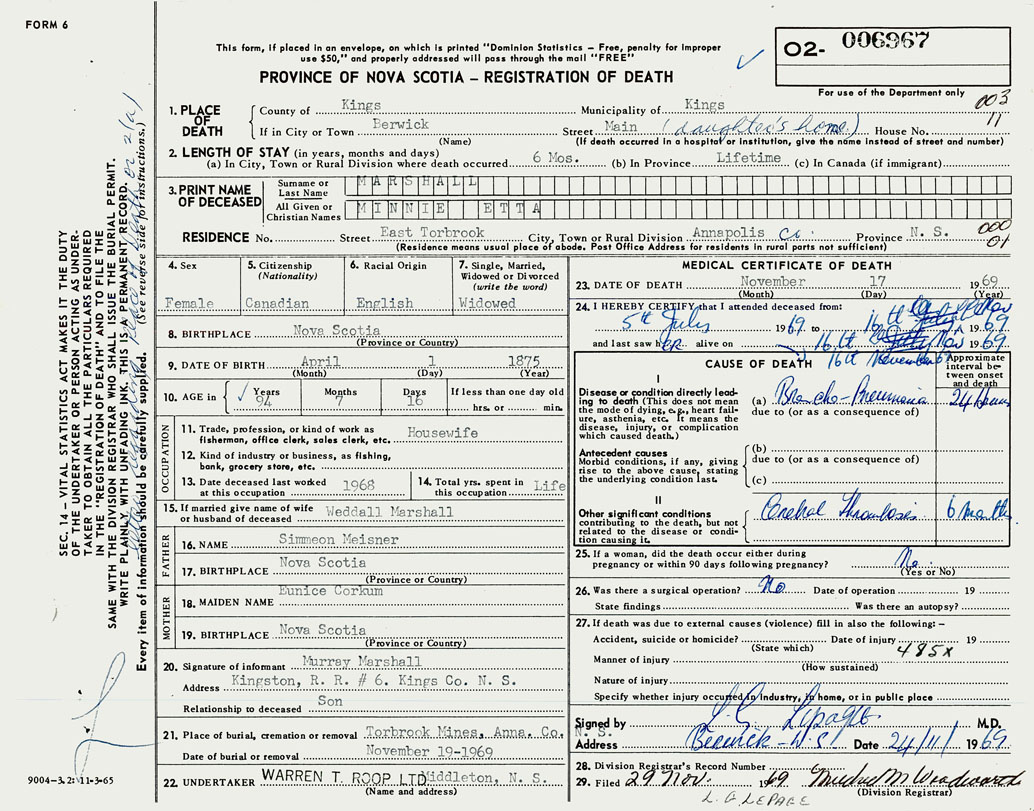 FORM 6
02- 006967
This form, if placed in an envelope, on which is printed "Dominion Statistics – Free, penalty for improper
use $50," and properly addressed will pass through the mail "FREE"
PROVINCE OF NOVA SCOTIA – REGISTRATION OF DEATH
For use of the Department only
003
11
1. PLACE OF DEATH
County of Kings Municipality of Kings
If in City or Town Berwick Street Main (daughter's home) House No.
(Name) (If death occurred in a hospital or institution, give the name instead of street and number)
2. LENGTH OF STAY (in years, months and days)
(a) In City, Town or Rural Division where death occurred 6 Mos. (b) In Province Lifetime (c) In Canada (if immigrant)
3. PRINT NAME OF DECEASED
Surname or Last Name MARSHALL
All Given or Christian Names MINNIE ETTA
RESIDENCE No. Street East Torbrook City, Town or Rural Division Annapolis Co. Province N. S.
000
01
(Residence means usual place of abode. Post Office Address for residents in rural parts not sufficient)
4. Sex
Female
5. Citizenship
(Nationality)
Canadian
6. Racial Origin
English
7. Single, Married,
Widowed or Divorced
(write the word)
Widowed
8. BIRTHPLACE Nova Scotia
(Province or Country)
9. DATE OF BIRTH April 1 1875
(Month) (Day) (Year)
10. AGE in Years 94 Months 7 Days 16 If less than one day old
hrs. or min.
OCCUPATION
11. Trade, profession, or kind of work as
fisherman, office clerk, sales clerk, etc. Housewife
12. Kind of industry or business, as fishing,
bank, grocery store, etc.
13. Date deceased last worked
at this occupation 1968
14. Total yrs. spent in
this occupation Life
15. If married give name of wife
or husband of deceased Weddall Marshall
FATHER
16. NAME Simmeon Meisner
17. BIRTHPLACE Nova Scotia
(Province or Country)
MOTHER
18. MAIDEN NAME Eunice Corkum
19. BIRTHPLACE Nova Scotia
(Province or Country)
20. Signature of informant Murray Marshall
Address Kingston, R. R. # 6. Kings Co. N. S.
Relationship to deceased Son
21. Place of burial, cremation or removal Torbrook Mines, Anna. Co. N. S.
Date of burial or removal November 19-1969
22. UNDERTAKER WARREN T. ROOP LTD Middleton, N. S.
(Name and address)
MEDICAL CERTIFICATE OF DEATH
23. DATE OF DEATH November 17 1969
(Month) (Day) (Year)
24. I HEREBY CERTIFY that I attended deceased from:
5th July 1969 to 16th Nov 1969
and last saw her alive on 16th Nov 1969
16th November 69
CAUSE OF DEATH
Approximate
interval be-
tween onset
and death
I
Disease or condition directly lead-
ing to death (This does not mean
the mode of dying, e.g., heart fail-
ure, asthenia, etc. It means the
disease, injury, or complication
which caused death.)
(a) Broncho-Pneumonia 24 hours
due to (or as a consequence of)
Antecedent causes
Morbid conditions, if any, giving
rise to the above cause, stating
the underlying condition last.
(b)
due to (or as a consequence of)
(c)
II
Other significant conditions
contributing to the death, but not
related to the disease or condi-
tion causing it.
Cerebral Thrombosis 6 months
25. If a woman, did the death occur either during
pregnancy or within 90 days following pregnancy? No
(Yes or No)
26. Was there a surgical operation? No Date of operation 19
State findings Was there an autopsy?
27. If death was due to external causes (violence) fill in also the following: –
Accident, suicide or homicide? Date of injury 19
(State which) 485X
Manner of injury
(How sustained)
Nature of injury
Specify whether injury occurred in industry, in home, or in public place
Signed by L. G. Lepage M.D.
Address Berwick - N.S. Date 24/11/1969
28. Division Registrar's Record Number
29. Filed 29 Nov. 1969 Mildred M Woodworth
(Division Registrar)
L. G LEPAGE
SEC. 14 – VITAL STATISTICS ACT MAKES IT THE DUTY
OF THE UNDERTAKER OR PERSON ACTING AS UNDER-
TAKER TO OBTAIN ALL THE PARTICULARS REQUIRED
IN THE "REGISTRATION OF DEATH" AND TO FILE THE
SAME WITH THE DIVISION REGISTRAR WHO SHALL ISSUE THE BURIAL PERMIT.
WRITE PLAINLY WITH UNFADING INK. THIS IS A PERMANENT RECORD.
Every item of information should be carefully supplied. (See reverse side for instructions.)
9004-3.2: 11-3-65